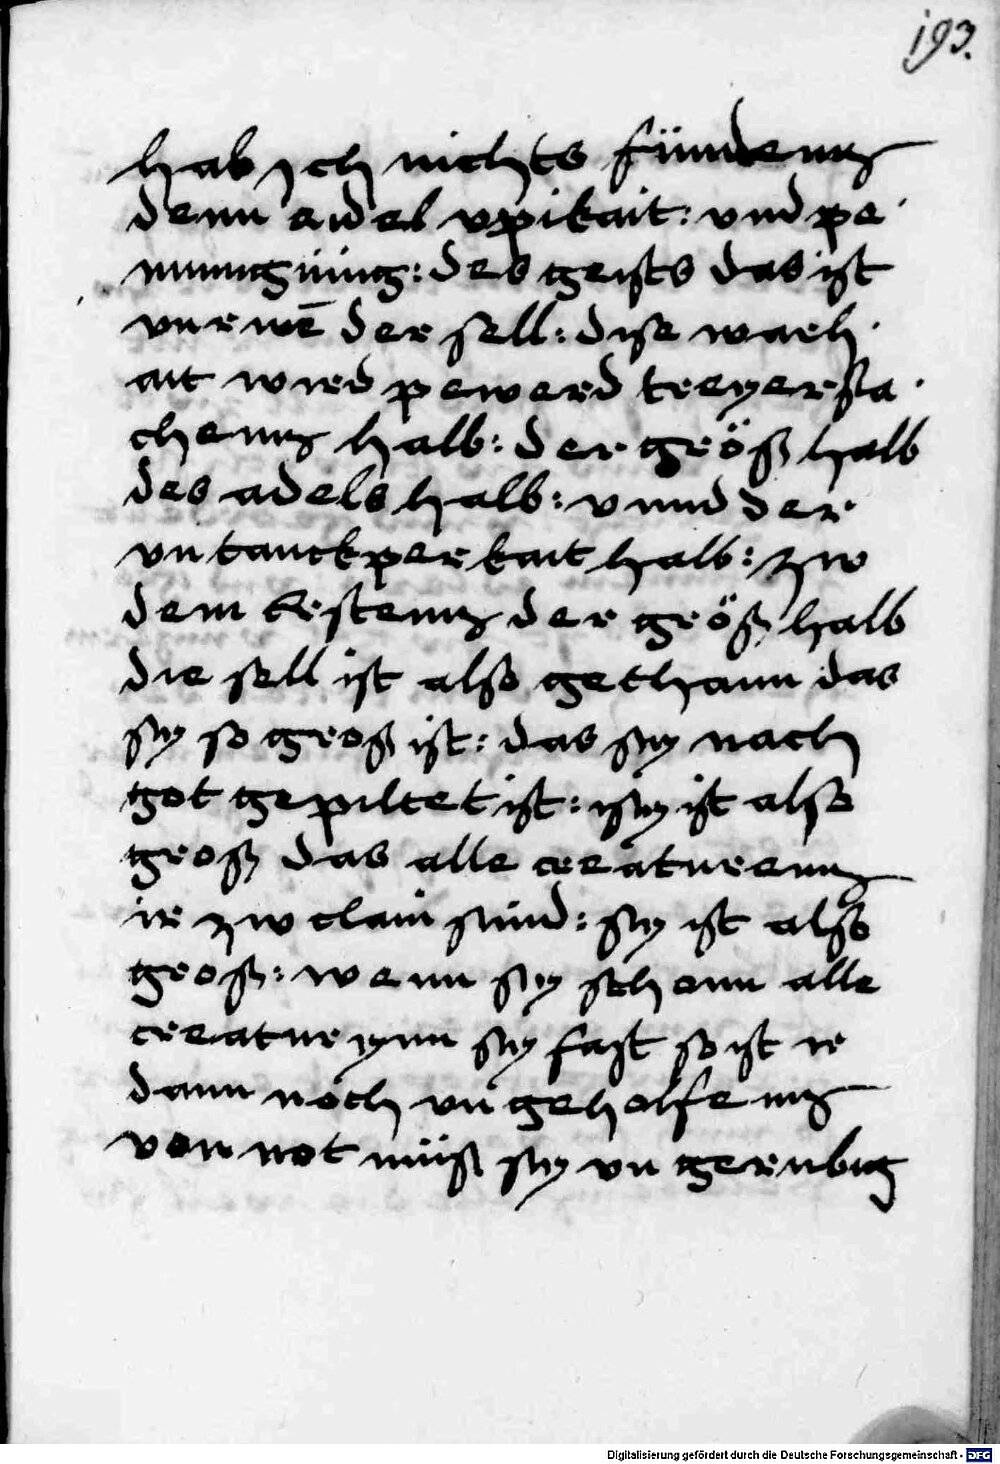 193.
hab ych nichts fünndenn
denn aidel vpikait: vnd pe
nunngnüng: des geists das ist
vnrwē der sell: dise warh
ait wird pewerd treyer sa
chenn halb: der größ halb
des adels halb: vnnd der
vntanckperkait halb: zw
dem Erstenn der größ halb
die sell ist also gethann das
sy so groß ist: das sy nach
got gepiltet ist: sy ist also
groß das alle creaturenn
ir zw clain sind: sy ist also
groß: wenn sy schonn alle
creatur ynn sy fast so ist ir
dann noch vngeholfenn
von not müß sy vngerubig
Digitalisierung gefördert durch die Deutsche Forschungsgemeinschaft - DFG